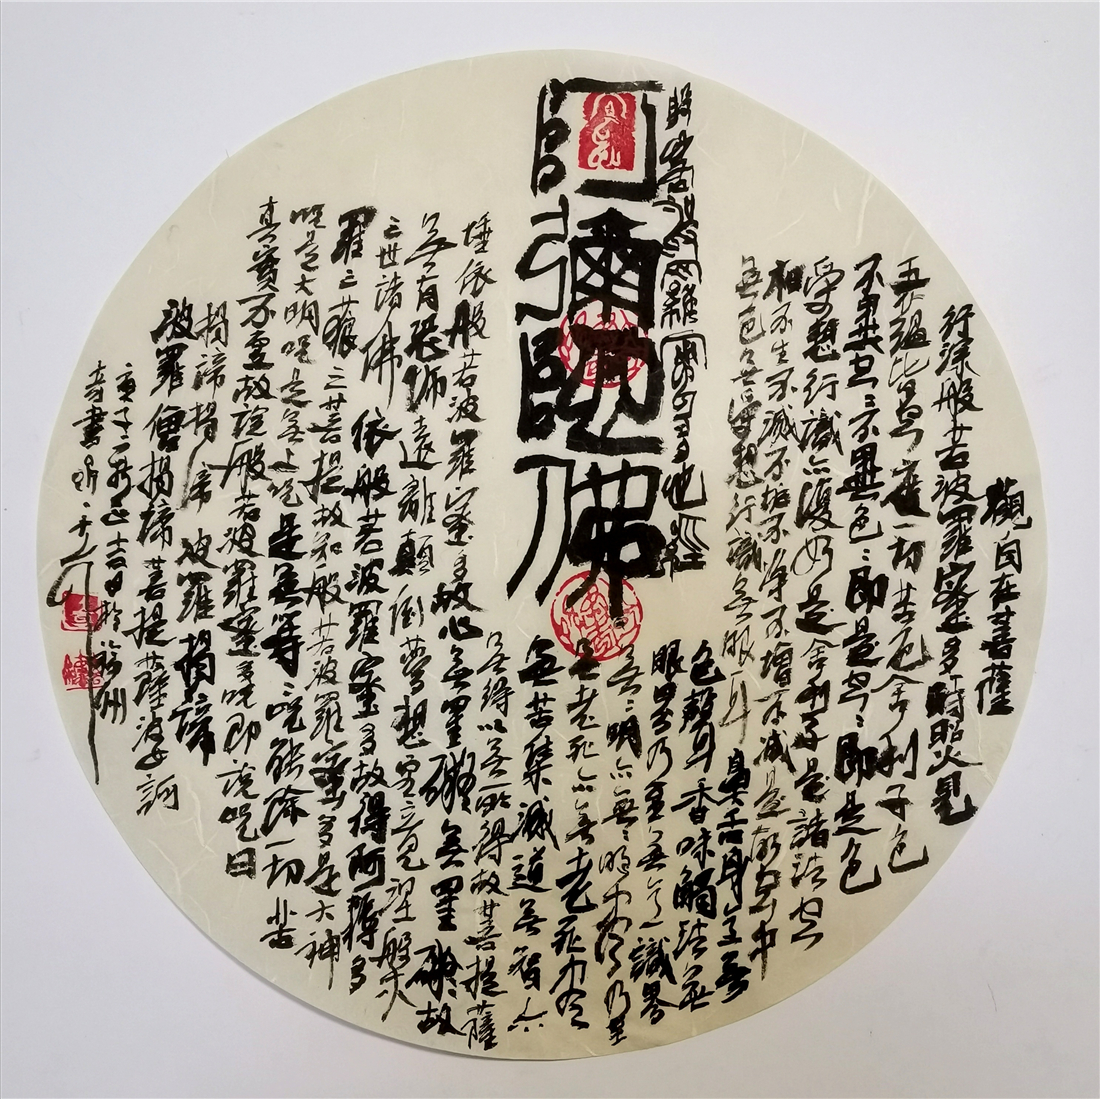 阿彌陀佛
般若波羅蜜多心經
觀自在菩薩
行深般若波羅蜜多時照見
五蘊皆空度一切苦厄舍利子色
不異空空不異色色即是空空即是色
受想行識亦復如是舍利子是諸法空
相不生不滅不垢不淨不增不減是故空中
無色無受想行識無眼耳
鼻舌身意無
色聲香味觸法無
眼界乃至無意識界
無無明亦無無明盡乃至
無老死亦無老死盡
無苦集滅道無智亦
無得以無所得故菩提薩
埵依般若波羅蜜多故心無罣礙無罣礙故
無有恐怖遠離顛倒夢想究竟涅槃
三世諸佛依般若波羅蜜多故得阿耨多
羅三藐三菩提故知般若波羅蜜多是大神
咒是大明咒是無上咒是無等等咒能除一切苦
真實不虛故說般若波羅蜜多咒即說咒曰
揭諦揭諦波羅揭諦
波羅僧揭諦菩提薩婆訶
庚子